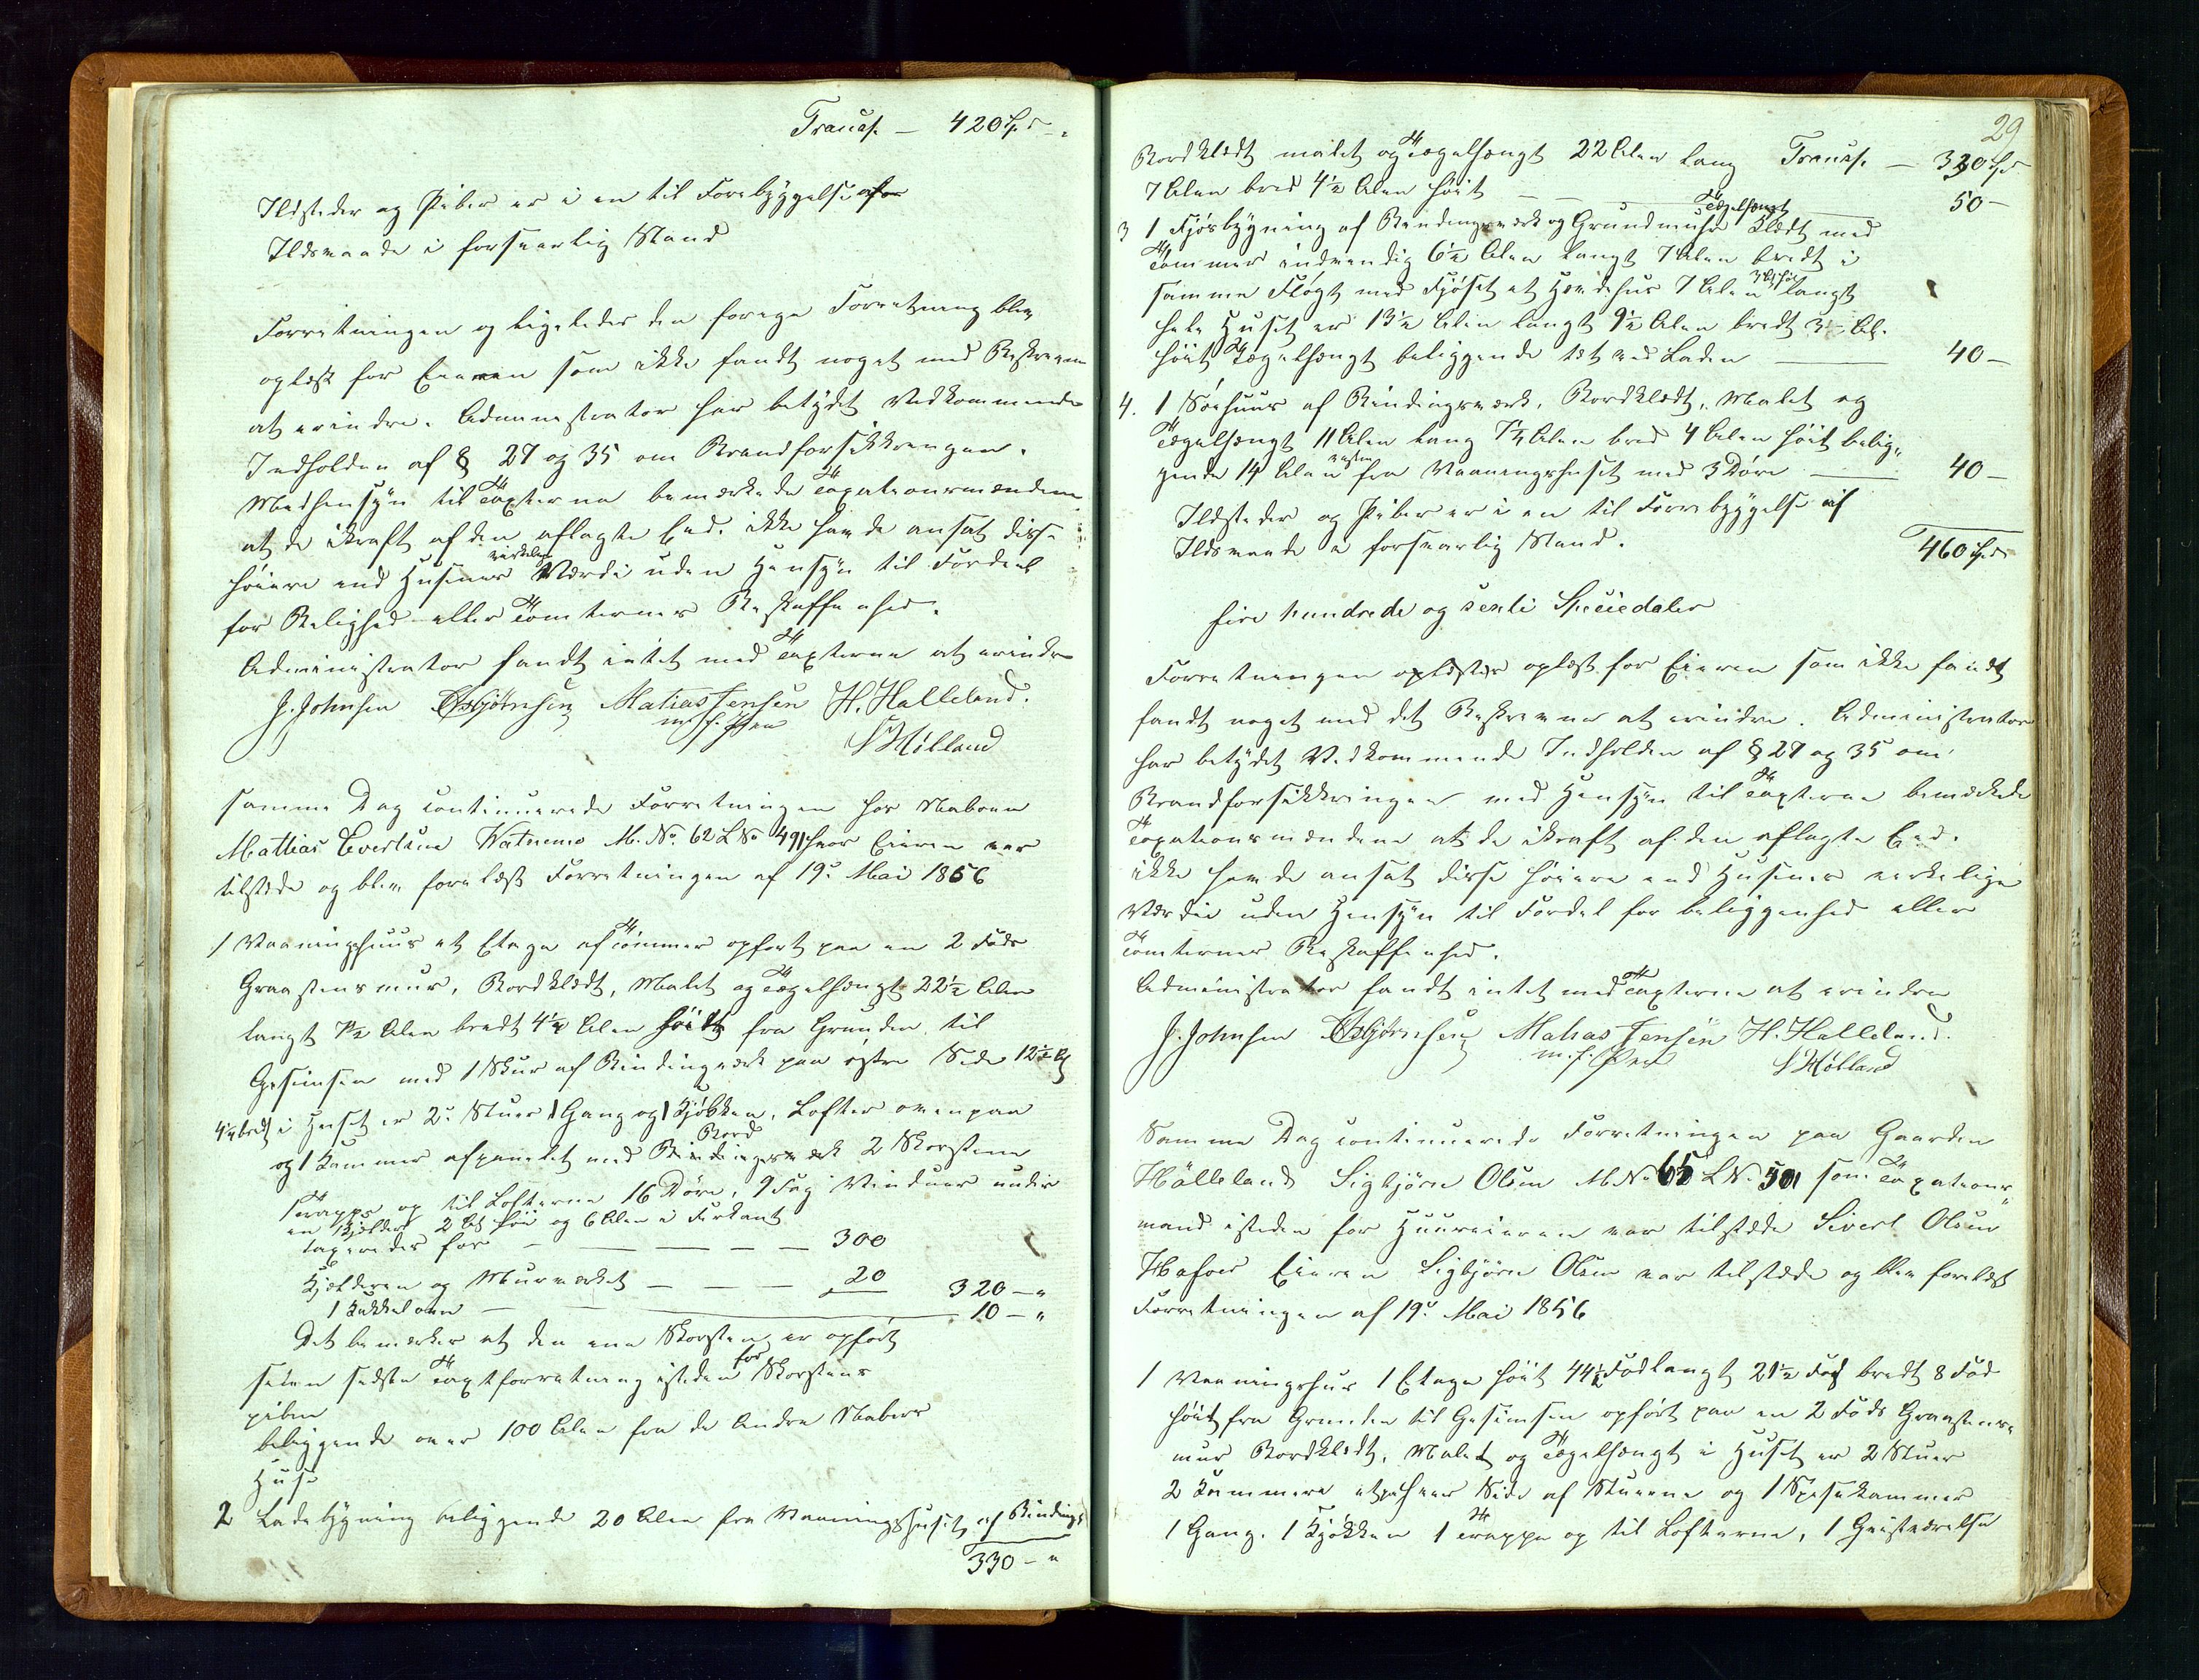 Transp. — 420 Spd -"
Ildsteder og Piber er i en til Forebyggelse af
Ildsvaade i forsvarlig Stand
Forretningen og ligeledes den forrige Forretning blev
oplæst for Eieren som ikke fandt noget med Beskrivelsen
at erindre. Administrator har betydet Vedkommende
Indholden af § 27 og 35 om Brandforsikkringen.
Medhensyn til Taxterne bemærkede Taxationsmændene
at de ikraft af den aflagte Eed. ikke havde ansat disse
høiere end Husenes virkelige Værdi uden Hensyn til Fordeel
for Belighed eller Tomternes Beskaffenhed.
Administrator fandt intet med Taxterne at erindre
J. Johnsen Asbjørnsen Matias Jensen H. Halleland.
m. f. Pen
S Hölland
samme Dag continuerede Forretningen hos Naboen
Mattias Evertsen Watnemo M. No 62 L No 491 hvor Eieren var
tilstæde og blev forelæst Forretningen af 19de Mai 1856
1 Vaaningshuus et Etage af Tømmer opført paa en 2 Fods
Graasteens muur, Bordklædt, Malet og Tægelhængt 22½ Alen
langt 7½ Alen bredt 4½ Alen høidt fra Grunden til
Gesimsen med 1 Skur af Bindingværk paa østre Side 12½ Al
4¼ bredt i Huset er 2de Stuer 1 Gang og 1 Kjökken. Lofter ovenpaa
og 1 Kammer afpanelet med Bord 2 Skorstene
Trappe op til Lofterne 16 Døre, 9 Fag Vinduer under
en Kjelder 2 Al høi og 6 Alen i Firkant
taxeredes for — — — — — 300
Kjelderen og Muurværket — — — 20 320 — "
1 Kakkelovn — — 10 — "
Det bemærkes at den ene Skorsten er opført
siden sidste Taxtforretning istedenfor Skorstens
piben
beliggende over 100 Alen fra de Andre Naboers
Huse
2 Ladebygning beliggende 20 Alen fra Vaaningshuset af Bindings
330 — "
29
Bordklædt malet og Tægelhængt 22 Alen lang Transp. — 330 Spd
7 Alen bred 4½ Alen høit — — — — 50 —
3 1 Fjösbygning af Bindingsværk og Grundmuur Tægelhængt Klædt med
Tømmer indvendig 6½ Alen langt 7 Alen bredt i
samme Flögt med Fjöset et Hørdehus 7 Alen langt
hele Huset er 13½ Alen langt 9½ Alen bredt 3½ Al.
høit Tægelhængt beliggende tæt ved Laden — 40 —
4. 1 Söehuus af Bindingsværk, Bordklædt, Malet og
Tægelhængt 11 Alen lang 7¼ Alen bred 4 Alen høit belig„
gende 14 Alen vesten fra Vaaningshuset med 3 Döre — 40 —
Ildsteder og Piber er i en til Forrebyggelse af
Ildsvaade i forsvarlig Stand.
460 Spd
fire hundrede og sexti Speciedaler
Forretningen oplæstes oplæst for Eieren som ikke fandt
fandt noget med det Beskrevne at erindre. Administrator
har betydet Vedkommende Indholden af § 27 og 35 om
Brandforsikkringen med Hensyn til Taxterne bemærkede
Taxationsmændene at de ikraft af den aflagte Eed.
ikke havde ansat disse høiere end Husenes virkelige
Værdie uden Hensyn til Fordel for beliggenhed eller
Tomternes Beskaffenhed.
Administrator fandt intet med Taxterne at erindre
J. Johnsen Asbjørnsen Matias Jensen H. Halleland.
m. f. Pen
S Hölland
Samme Dag continuerede Forretningen paa Gaarden
Hålleland Sigbjörn Olsen M No 65 L No 501 som Taxations„
mand isteden for Huuseieren var tilstæde Sivert Olsen
Eieren Sigbjörn Olsen var tilstæde og blev forelæst
Forretningen af 19de Mai 1856
1 Vaaningshus 1 Etage høit 44½ Fod langt 21½ Fod bredt 8 Fod
høit fra Grunden til Gesimsen opført paa en 2 Fods Graasteens„
mur Bordklædt, Malet og Tægelhængt i Huset er 2 Stuer
2 Kammere et paa hver Side af Stuerne og 1 Spisekammer
1 Gang. 1 Kjøkken 1 Trappe op til Lofterne, 1 Gristværelse